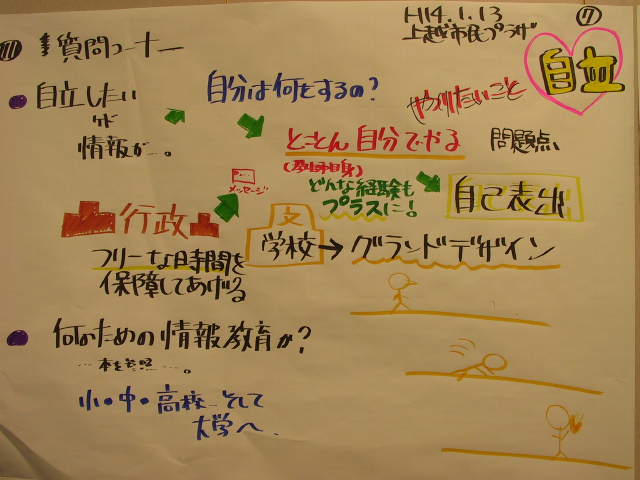 H14.1.13
⑦
上越市民プラザ
質問コーナー
自立
自立したい
けど
情報が…。
自分は何をするの?
やりたいこと
とことん自分でやる
問題点
メッセージ
どんな経験も
プラスに!
自己表出
行政
文
学校→グランドデザイン
フリーな時間を
保障してあげる
何のための情報教育か?
…本を参照…。
小・中・高校…そして
大学へ